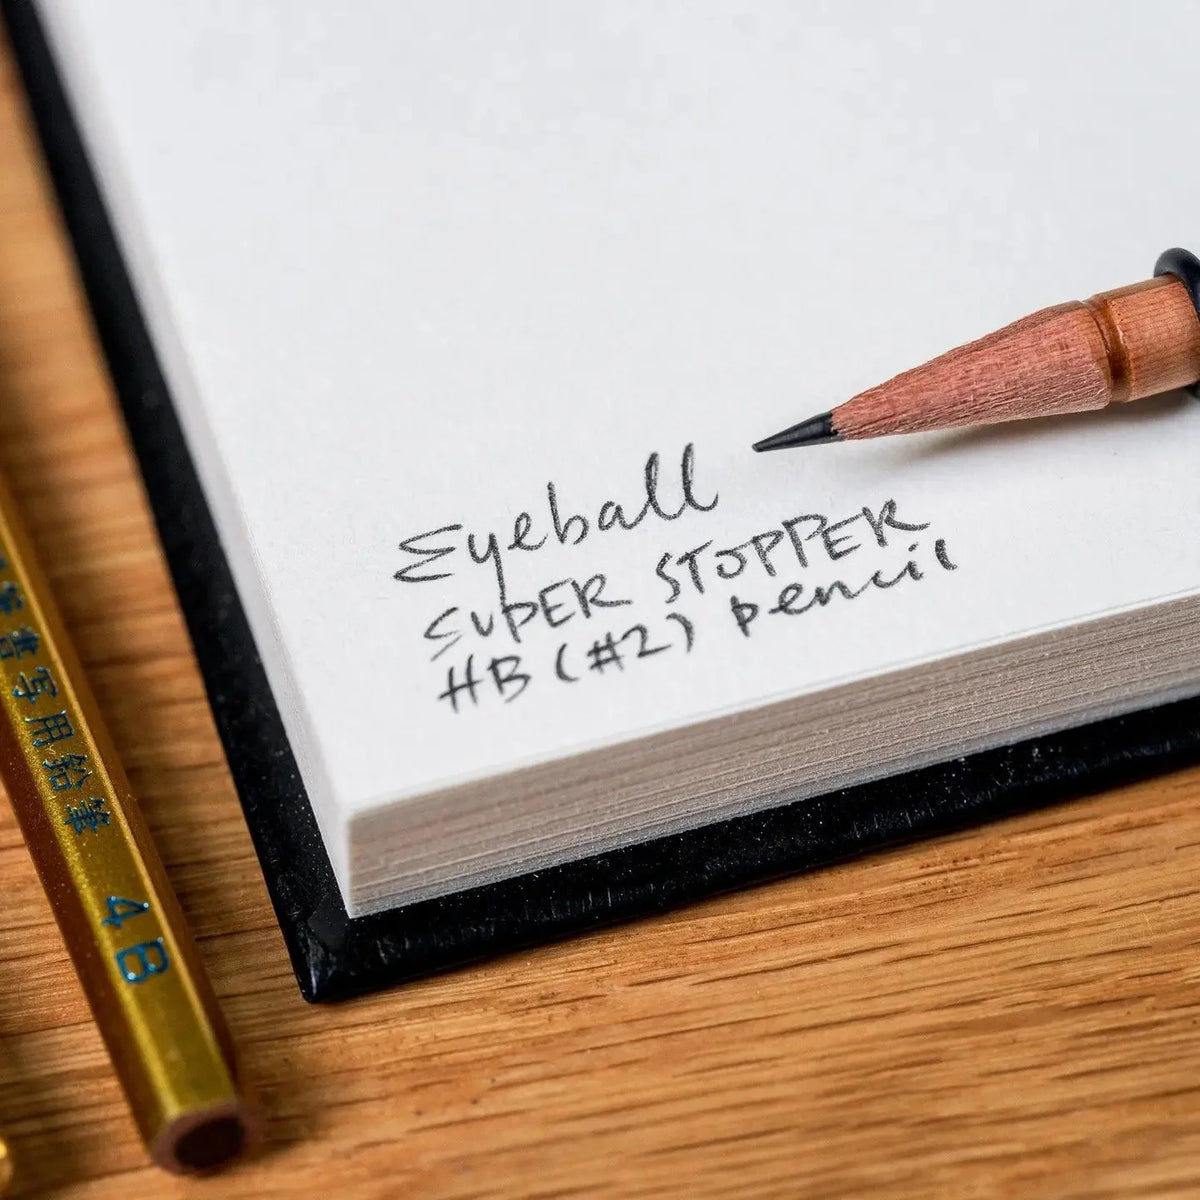 Eyeball
SUPER STOPPER
HB (#2) pencil
書写用鉛筆 4B